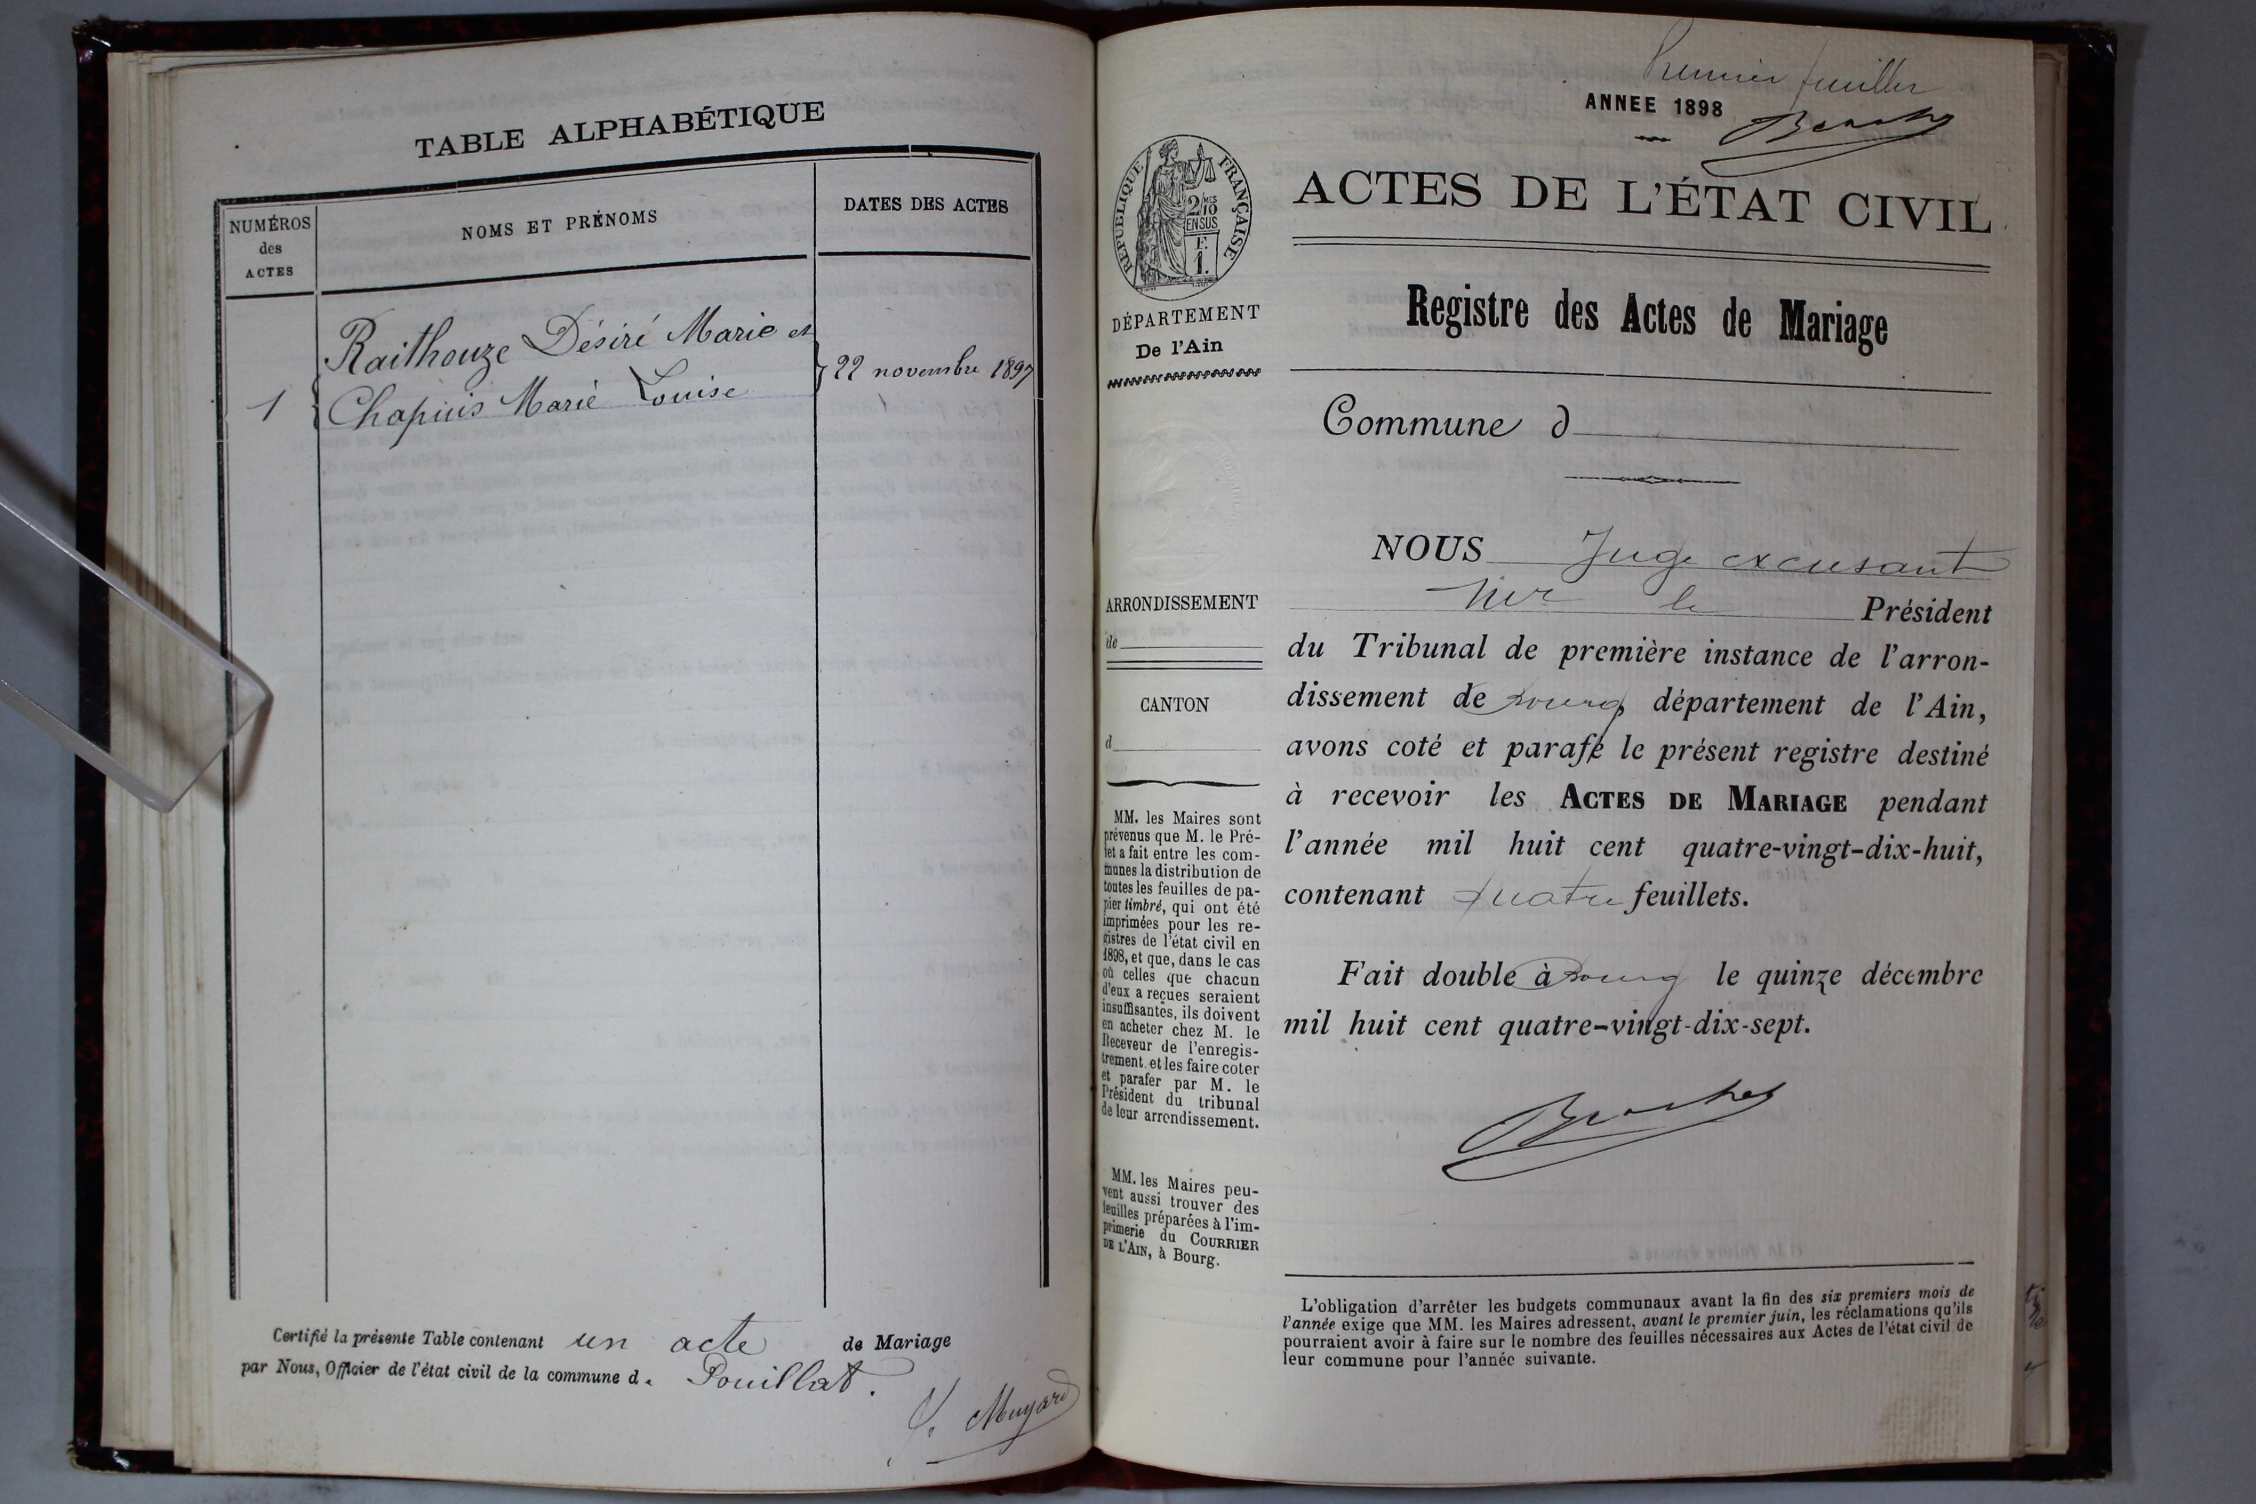 TABLE ALPHABÉTIQUE
NUMÉROS
des
ACTES
NOMS ET PRÉNOMS
DATES DES ACTES
Raithouze Désiré Marie et
22 novembre 1897
1
Chapuis Marie Louise
Certifié la présente Table contenant un acte de Mariage
par Nous, Officier de l'état civil de la commune d. Pouillat.
Muyard
Premier feuillet
ANNEE 1898
RÉPUBLIQUE FRANÇAISE
2/10
MES
EN SUS
F.
1.
DÉPARTEMENT
De l'Ain
ARRONDISSEMENT
de
CANTON
d
MM. les Maires sont
prévenus que M. le Pré-
fet a fait entre les com-
munes la distribution de
toutes les feuilles de pa-
pier timbré, qui ont été
imprimées pour les re-
gistres de l'état civil en
1898, et que, dans le cas
où celles que chacun
d'eux a reçues seraient
insuffisantes, ils doivent
en acheter chez M. le
Receveur de l'enregis-
trement et les faire coter
et parafer par M. le
Président du tribunal
de leur arrondissement.
MM. les Maires peu-
vent aussi trouver des
feuilles préparées à l'im-
primerie du COURRIER
DE L'AIN, à Bourg.
ACTES DE L'ÉTAT CIVIL
Registre des Actes de Mariage
Commune d
NOUS Juge excusant
Mr le Président
du Tribunal de première instance de l'arron-
dissement de Bourg, département de l'Ain,
avons coté et parafé le présent registre destiné
à recevoir les ACTES DE MARIAGE pendant
l'année mil huit cent quatre-vingt-dix-huit,
contenant quatre feuillets.
Fait double à Bourg le quinze décembre
mil huit cent quatre-vingt-dix-sept.
L'obligation d'arrêter les budgets communaux avant la fin des six premiers mois de
l'année exige que MM. les Maires adressent, avant le premier juin, les réclamations qu'ils
pourraient avoir à faire sur le nombre des feuilles nécessaires aux Actes de l'état civil de
leur commune pour l'année suivante.